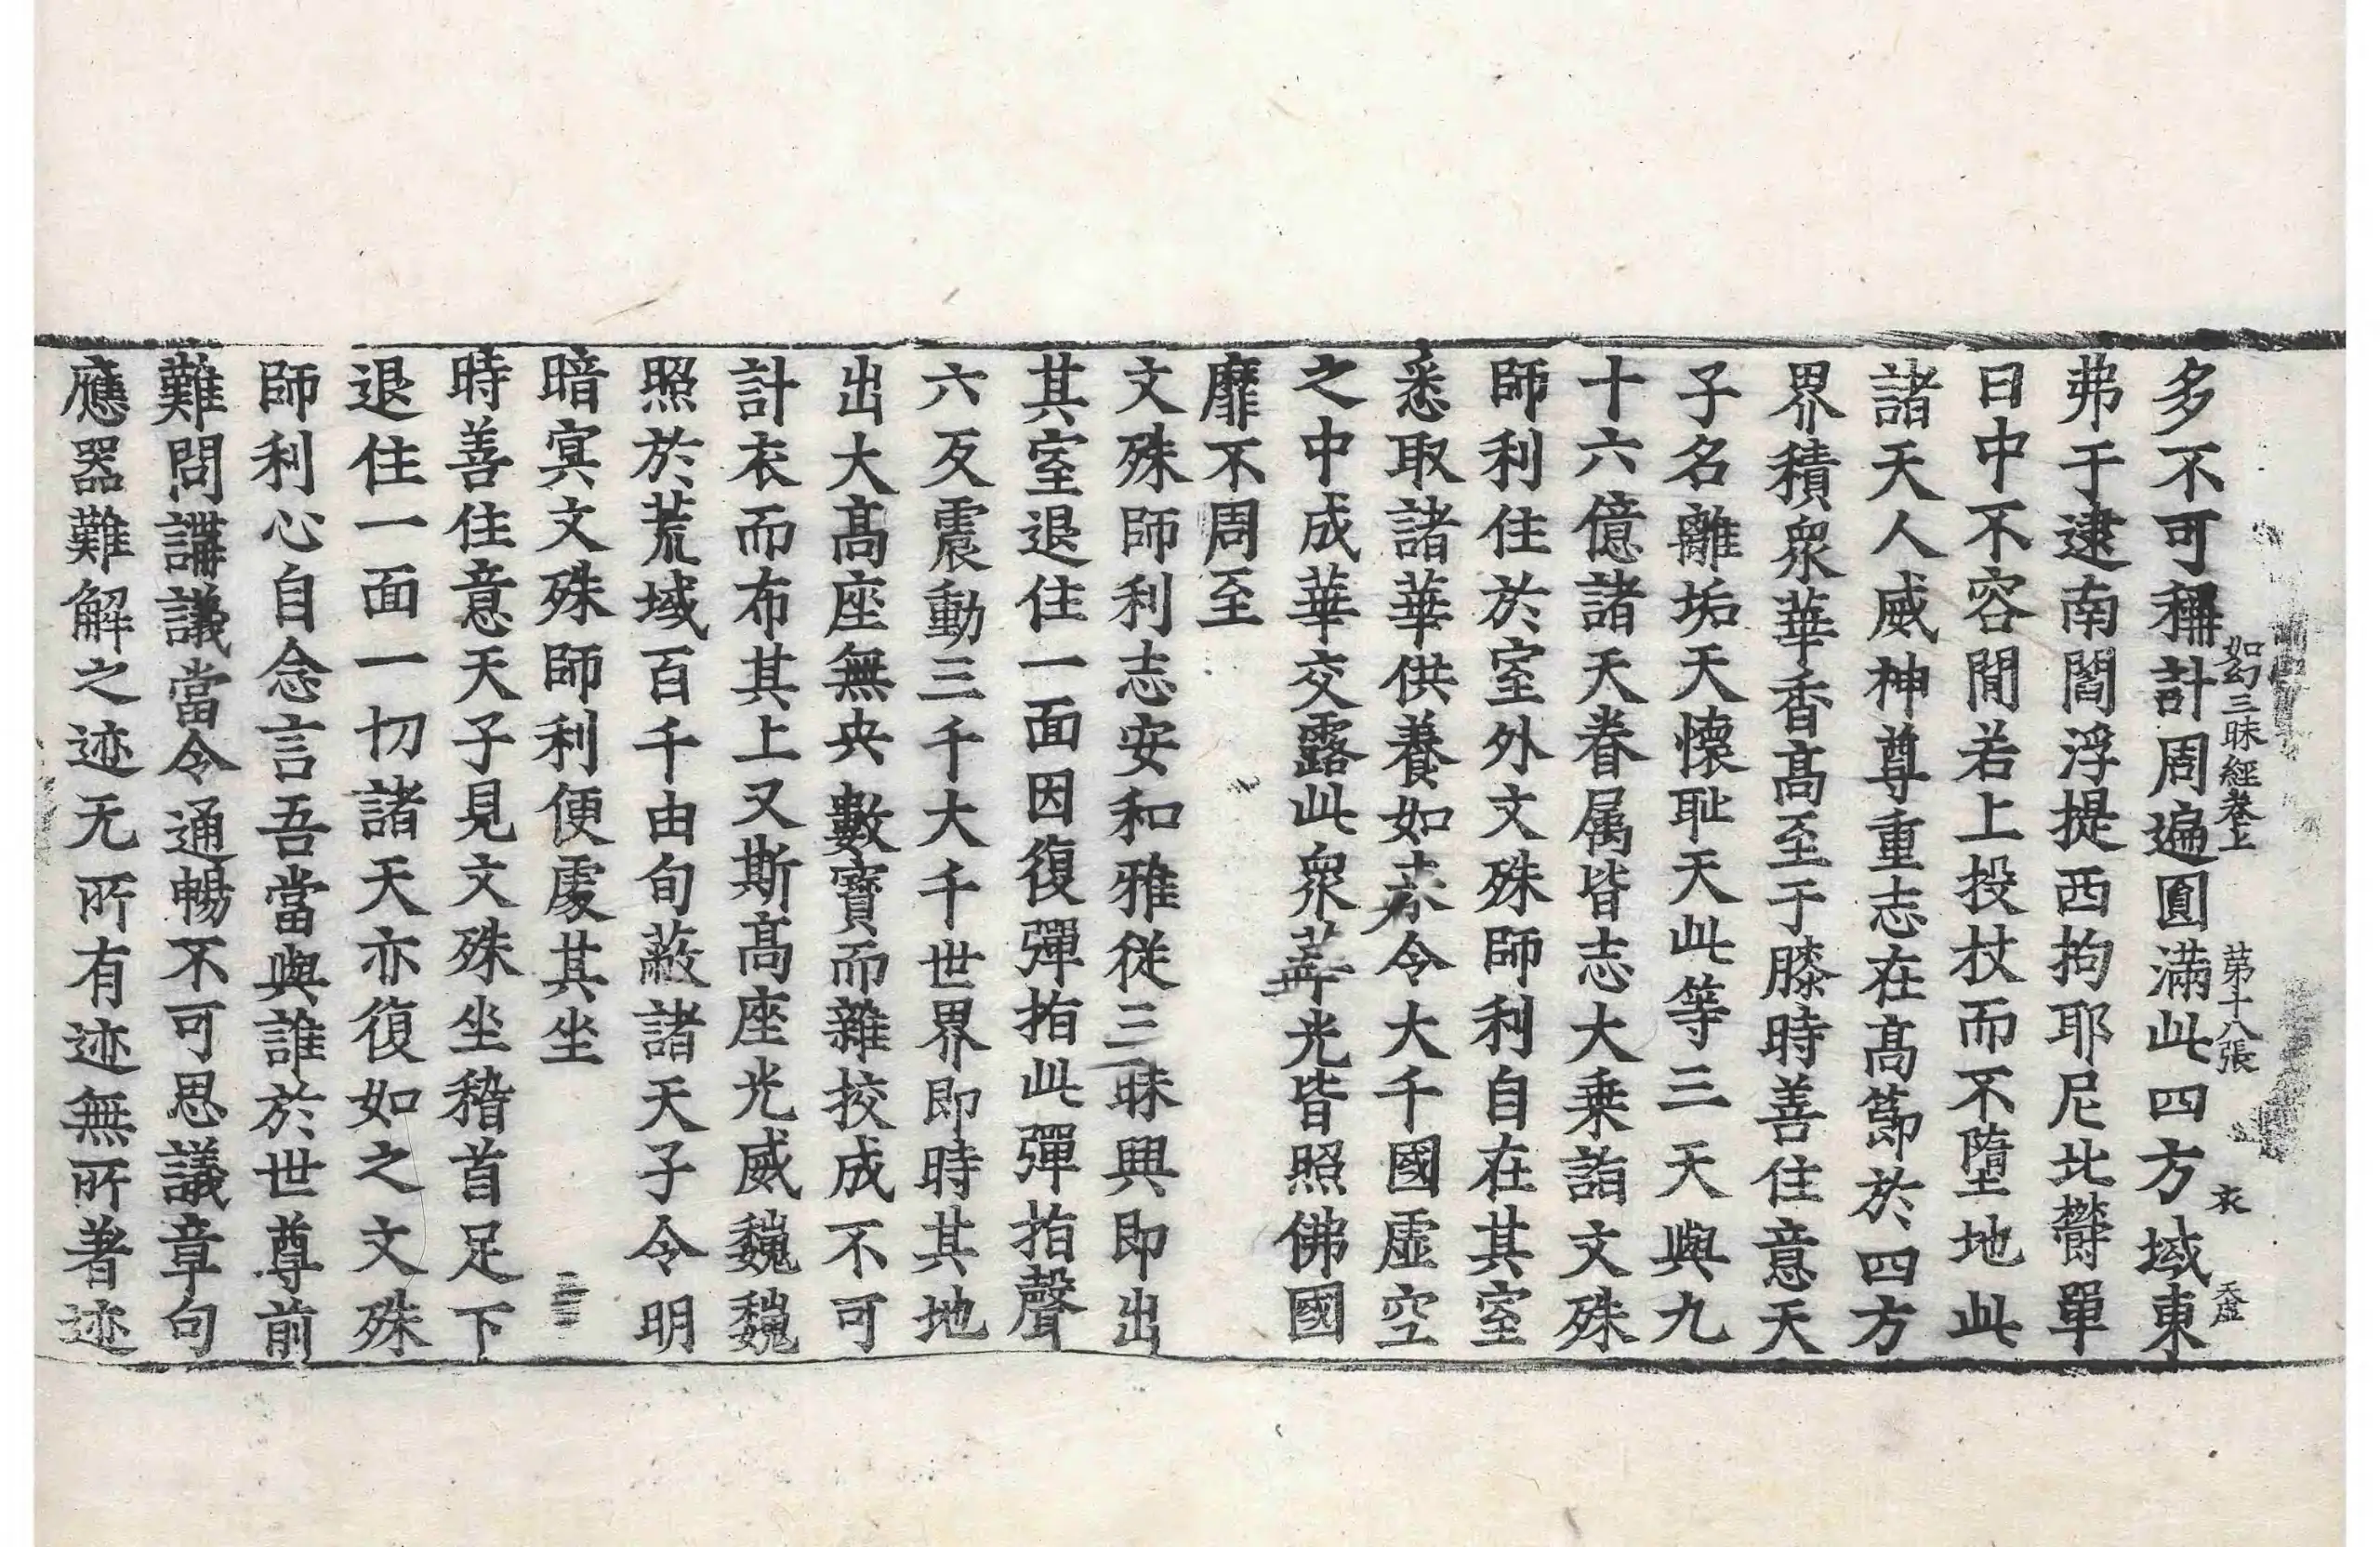 如幻三昧經卷上 第十八張 衣 天虛
多不可稱計周遍圓滿此四方域東
弗于逮南閻浮提西拘耶尼北欝單
曰中不容間若上投杖而不墮地此
諸天人威神尊重志在髙節於四方
界積衆華香髙至于膝時善住意天
子名離垢天懷耻天此等三天與九
十六億諸天眷属皆志大乗詣文殊
師利住於室外文殊師利自在其室
悉取諸華供養如來令大千國虛空
之中成華交露此衆華光皆照佛國
靡不周至
文殊師利志安和雅從三昧興即出
其室退住一面因復彈指此彈指聲
六反震動三千大千世界即時其地
出大髙座無央數寶而雜挍成不可
計衣而布其上又斯髙座光威巍巍
照於荒域百千由旬蔽諸天子令明
暗冥文殊師利便處其坐
時善住意天子見文殊坐稽首足下
退住一面一切諸天亦復如之文殊
師利心自念言吾當與誰於世尊前
難問講議當令通暢不可思議章句
應器難解之迹无所有迹無所著迹